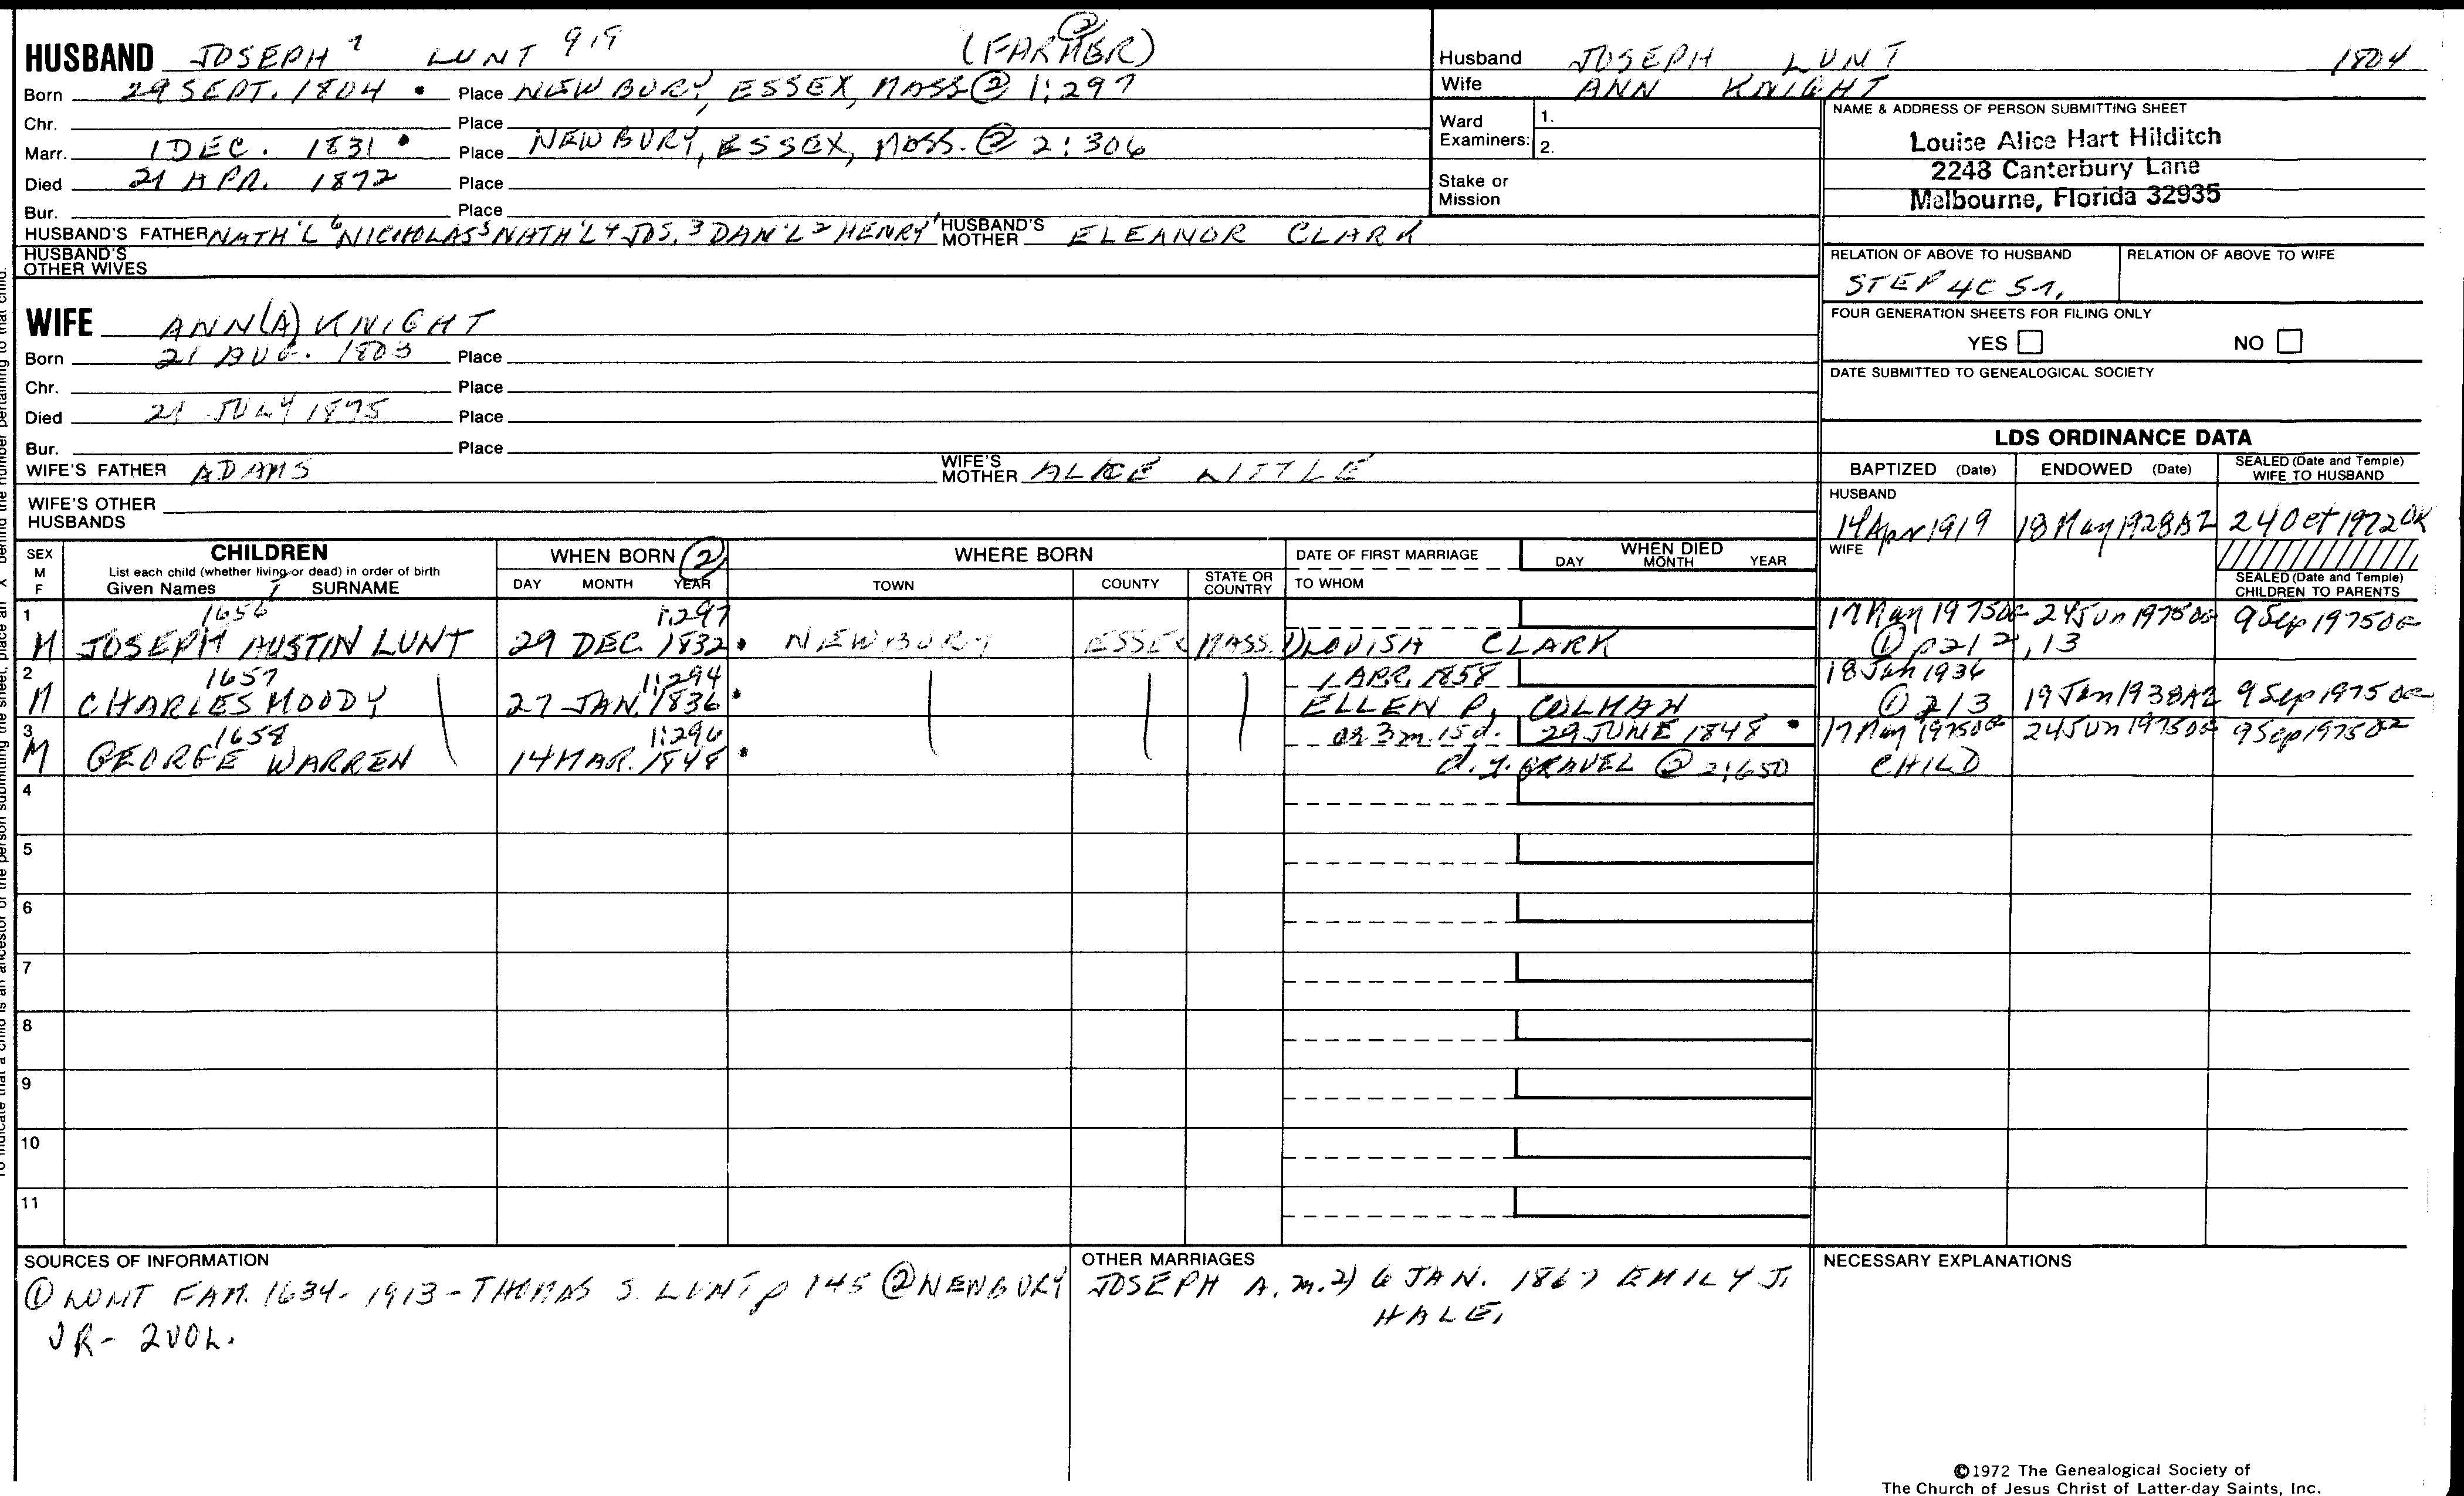 HUSBAND JOSEPH 7 LUNT 919 (FARMER) 2
Born 29 SEPT. 1804 • Place NEWBURY, ESSEX, MASS ② 1:297
Chr. Place
Marr. 1 DEC. 1831 • Place NEWBURY, ESSEX, MASS. ② 2:306
Died 21 APR. 1872 Place
Bur. Place
HUSBAND'S FATHER NATH'L 6 NICHOLAS 5 NATH'L 4 JOS. 3 DAN'L 2 HENRY 1 HUSBAND'S MOTHER ELEANOR CLARK
HUSBAND'S OTHER WIVES
WIFE ANN(A) KNIGHT
Born 21 AUG. 1803 Place
Chr. Place
Died 21 JULY 1875 Place
Bur. Place
WIFE'S FATHER ADAMS WIFE'S MOTHER ALICE LITTLE
WIFE'S OTHER HUSBANDS
Husband JOSEPH LUNT 1804
Wife ANN KNIGHT
Ward Examiners: 1.
2.
Stake or Mission
NAME & ADDRESS OF PERSON SUBMITTING SHEET
Louise Alice Hart Hilditch
2248 Canterbury Lane
Melbourne, Florida 32935
RELATION OF ABOVE TO HUSBAND RELATION OF ABOVE TO WIFE
STEP 4C 5
FOUR GENERATION SHEETS FOR FILING ONLY
YES NO
DATE SUBMITTED TO GENEALOGICAL SOCIETY
LDS ORDINANCE DATA
BAPTIZED (Date) ENDOWED (Date) SEALED (Date and Temple) WIFE TO HUSBAND
HUSBAND
14 Apr 1919 18 May 1928AZ 24 Oct 1972
WIFE
SEALED (Date and Temple) CHILDREN TO PARENTS
SEX M F CHILDREN WHEN BORN ② WHERE BORN DATE OF FIRST MARRIAGE WHEN DIED
List each child (whether living or dead) in order of birth
Given Names SURNAME DAY MONTH YEAR TOWN COUNTY STATE OR COUNTRY TO WHOM DAY MONTH YEAR
1 1656 1:297 17 May 1975 24 Jun 1975 9 Sep 1975
M JOSEPH AUSTIN LUNT 29 DEC. 1832 • NEWBURY ESSEX MASS. 1) LOVISA CLARK ① p212,13
2 1657 1:294 1 APR. 1858 18 Jan 1936
M CHARLES MOODY 27 JAN. 1836 • ELLEN P. COLMAN ① 213 19 Jan 1938AZ 9 Sep 1975
3 1658 1:296 ae 3m. 15d. 29 JUNE 1848 • 17 May 1975 24 Jun 1975 9 Sep 1975
M GEORGE WARREN 14 MAR. 1848 • d.y. GRAVEL ② 2:650 CHILD
4
5
6
7
8
9
10
11
SOURCES OF INFORMATION
① LUNT FAM. 1634-1913 - THOMAS S. LUNT p 145 ② NEWBURY
VR - 2VOL.
OTHER MARRIAGES
JOSEPH A. m. 2) 6 JAN. 1867 EMILY J.
HALE.
NECESSARY EXPLANATIONS
©1972 The Genealogical Society of
The Church of Jesus Christ of Latter-day Saints, Inc.